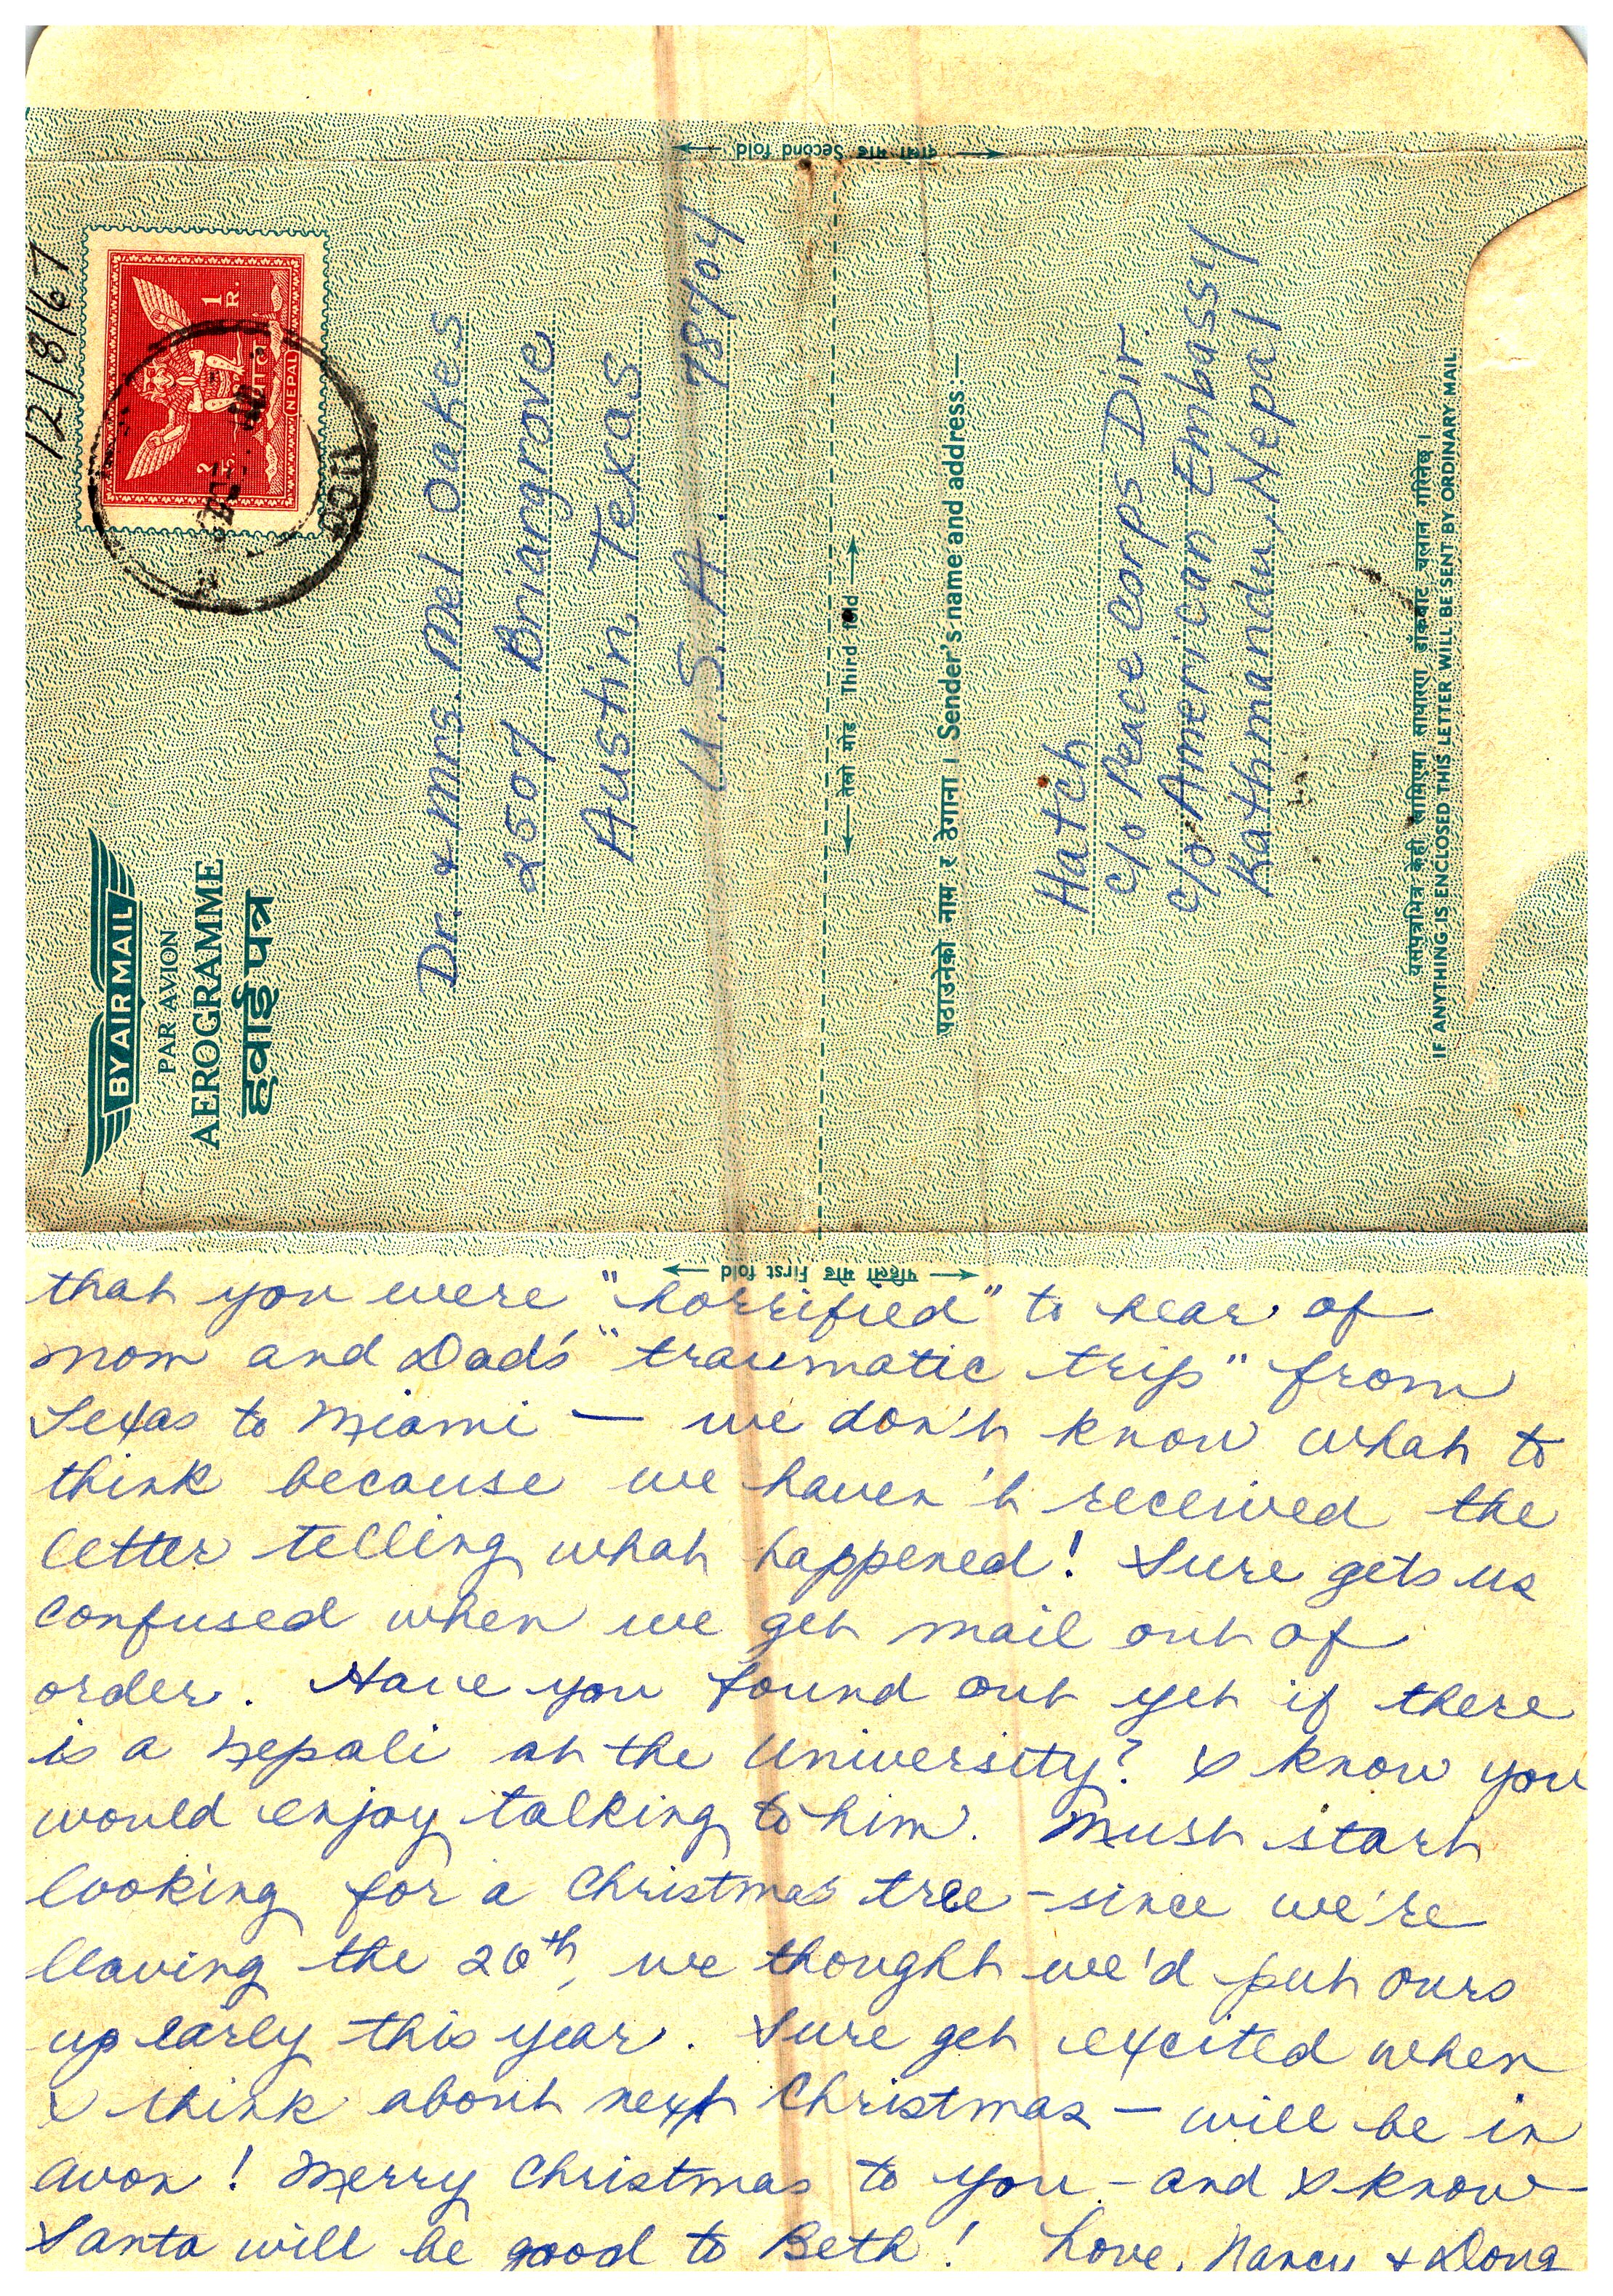 दोस्रो मोड Second fold
12/8/67
1 R.
NEPAL
BY AIR MAIL
PAR AVION
AEROGRAMME
हवाई पत्र
Dr. & Mrs. Mel Oakes
2507 Briangrove
Austin, Texas
U.S.A. 78704
तेस्रो मोड Third fold
पठाउनेको नाम र ठेगाना । Sender's name and address:—
Hatch
c/o Peace Corps Dir.
c/o American Embassy
Kathmandu, Nepal
यसपत्रभित्र केही सामिएमा साधारण डाँकबाट चलान गरिनेछ ।
IF ANYTHING IS ENCLOSED THIS LETTER WILL BE SENT BY ORDINARY MAIL.
पहिलो मोड First fold
that you were "horrified" to hear of
mom and Dad's "traumatic trip" from
Texas to Miami — we don't know what to
think because we haven't received the
letter telling what happened! Sure gets us
confused when we get mail out of
order. Have you found out yet if there
is a Nepali at the University? I know you
would enjoy talking to him. Must start
looking for a Christmas tree - since we're
leaving the 20th, we thought we'd put ours
up early this year. Sure get excited when
I think about next Christmas - will be in
Avon! Merry Christmas to you - and I know
Santa will be good to Beth! Love, Nancy & Doug